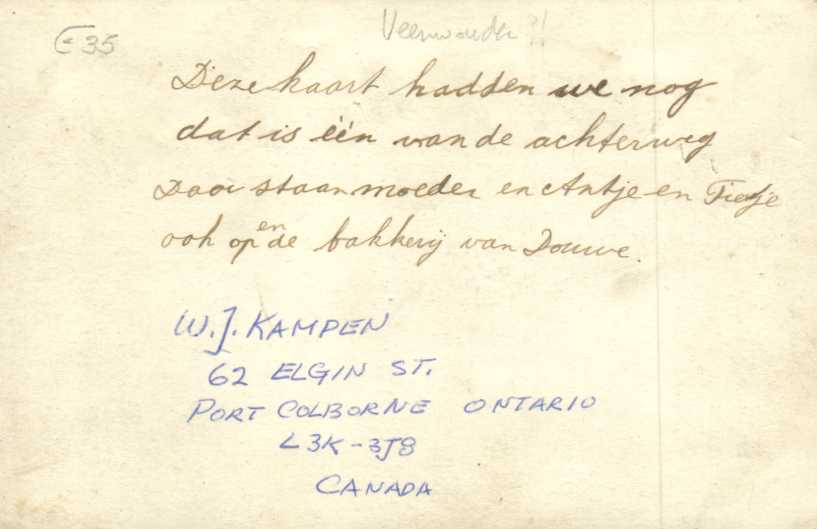 E 35
Veenwouden?!
Deze kaart hadden we nog
dat is één van de achterweg
Daar staan moeder en Antje en Fietje
ook op en de bakkerij van Douwe.
W.J. KAMPEN
62 ELGIN ST.
PORT COLBORNE ONTARIO
L3K-3J8
CANADA